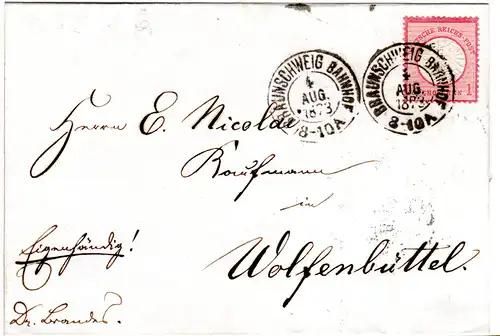 BRAUNSCHWEIG BAHNHOF
4
AUG.
1873
8-10A
BRAUNSCHWEIG BAHNHOF
4
AUG.
1873
8-10A
DEUTSCHE REICHS-POST
1
Herrn E. Nicolai
Kaufmann
in
Wolfenbüttel.
Eigenhändig!
Dr. Brandes.